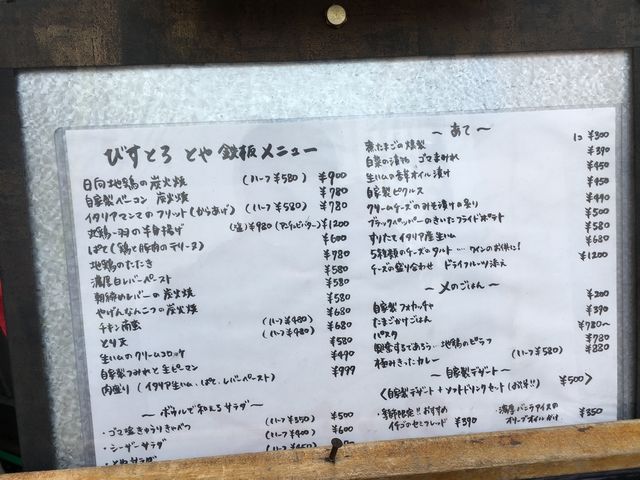 びすとろ とや 鉄板メニュー
日向地鶏の炭火焼 (ハーフ¥580) ¥900
自家製ベーコン 炭火焼 ¥780
イタリアマンマのフリット(からあげ) (ハーフ¥580) ¥780
地鶏一羽の半身揚げ (塩)¥980 (アンチョビバター)¥1200
ぱて(鶏と豚肉のテリーヌ) ¥600
地鶏のたたき ¥780
濃厚白レバーペースト ¥580
朝締めレバーの炭火焼 ¥580
やげんなんこつの炭火焼 ¥580
チキン南蛮 (ハーフ¥480) ¥680
とり天 (ハーフ¥480) ¥680
生ハムのクリームコロッケ ¥580
自家製つみれと生ピーマン ¥490
肉盛り (イタリア生ハム、ぱて、レバーペースト) ¥999
〜ボウルで和えるサラダ〜
・ゴマ塩きゅうりきゃべつ (ハーフ¥350) ¥500
・シーザーサラダ (ハーフ¥400) ¥600
・とやサラダ
〜 あて 〜
煮たまごの燻製 1コ ¥300
白菜の漬物 ゴマまみれ ¥390
生ハムの香草オイル漬け ¥450
自家製ピクルス ¥450
クリームチーズのみそ漬けの炙り ¥490
ブラックペッパーのきいたフライドポテト ¥500
すりたてイタリア産生ハム ¥580
5種類のチーズのタルト … ワインのお供に! ¥580
チーズの盛り合わせ ドライフルーツ添え ¥1200
〜〆のごはん〜
自家製フォカッチャ ¥200
たまごかけごはん ¥390
パスタ ¥780〜
地鶏のピラフ ¥780
極みきったカレー (ハーフ¥580) ¥880
〜自家製デザート〜
〈自家製デザート + ソフトドリンクセット(お得!!) ¥500〉
・季節限定!! おすすめ
イチゴのセミフレッド ¥390
・濃厚バニラアイスの
オリーブオイルがけ ¥350